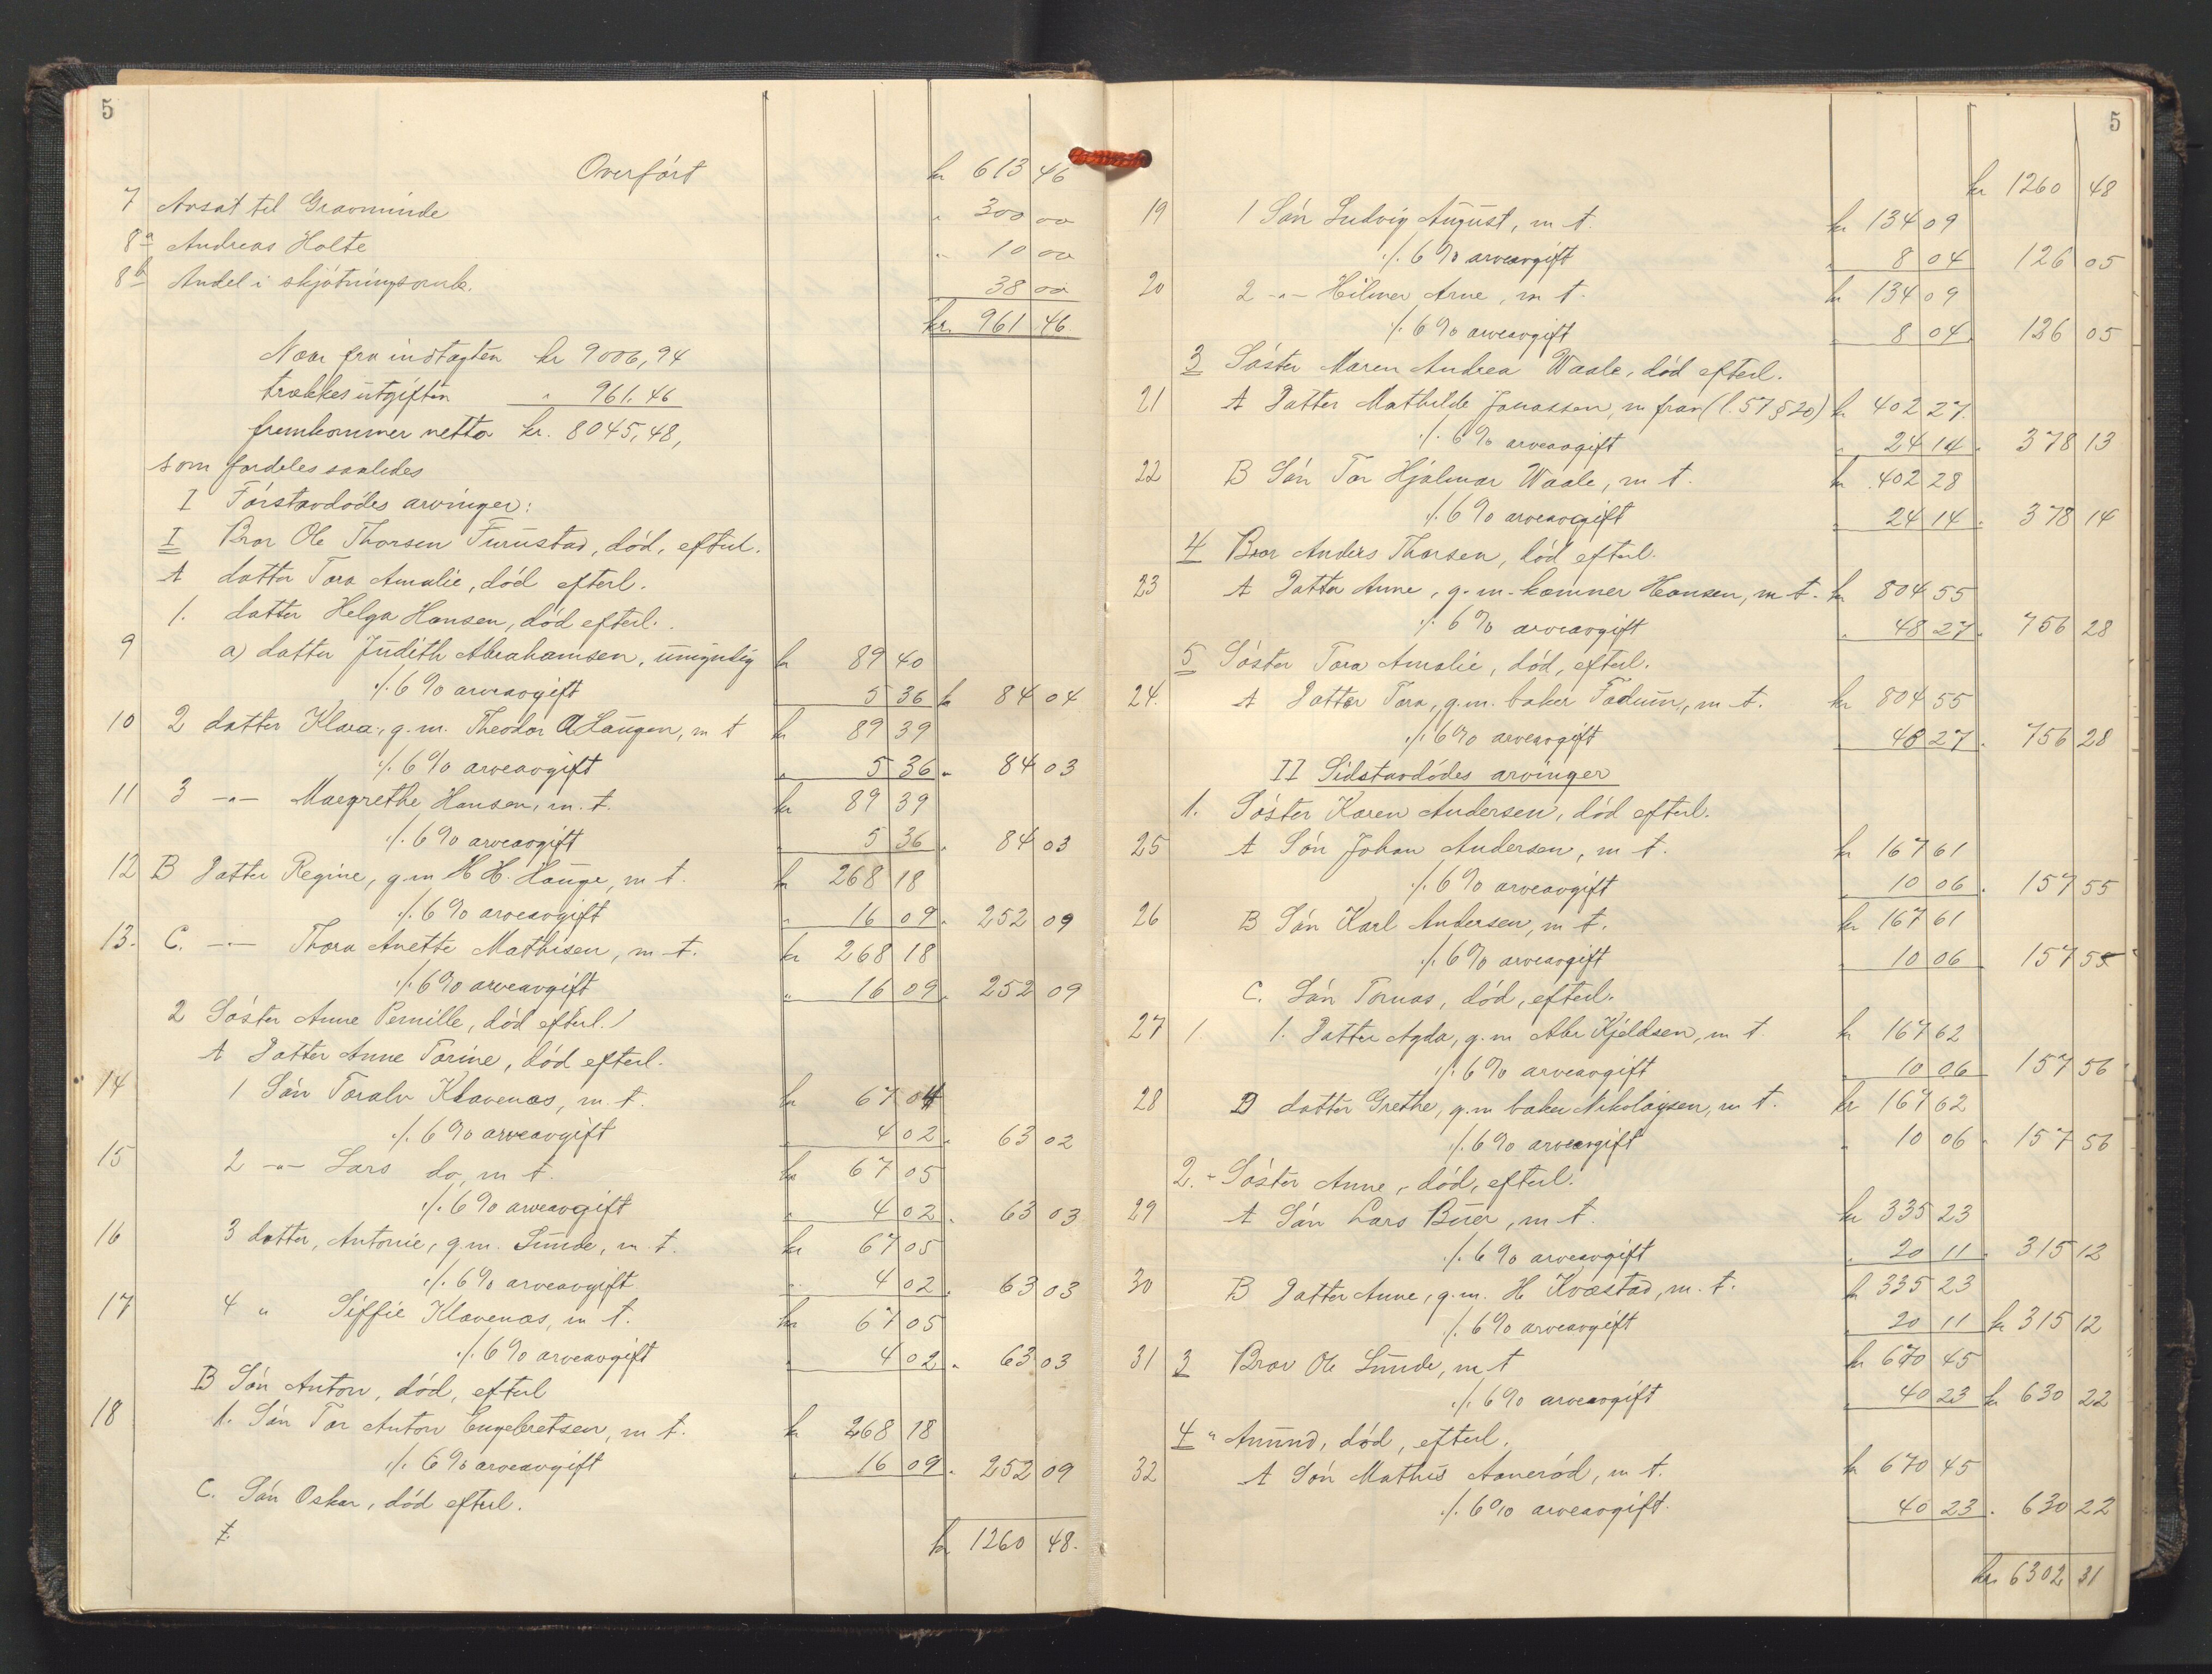 5
Overført kr 613 46
7 Avsat til Gravminde " 300 00
8a Andreas Holte " 10 00
8b Andel i skjøtningsomk. 38 00
kr. 961 46
Naar fra indtægten kr 9006,94
trækkes utgiften " 961.46
fremkommer netto kr. 8045,48,
som fordeles saaledes
I Førstavdødes arvinger:
I Bror Ole Thorsen Furustad, død, efterl.
A datter Tora Amalie, død efterl.
1. datter Helga Hansen, død efterl.
9 a) datter Judith Abrahamsen, umyndig kr 89 40
./. 6 % arveavgift 5 36 kr 84 04
10 2 datter Klara, g.m. Theodor A Haugen, m t kr 89 39
./. 6 % arveavgift " 5 36 " 84 03
11 3 -"- Maegrethe Hansen, m. t. kr 89 39
./. 6 % arveavgift " 5 36 " 84 03
12 B Datter Regine, g.m H H. Hauge, m t. kr 268 18
./. 6 % arveavgift " 16 09 " 252 09
13. C. -"- Thora Anette Mathisen, m t. kr 268 18
./. 6 % arveavgift " 16 09 " 252 09
2 Søster Anne Pernille, død efterl.
A Datter Anne Torine, død efterl.
14 1 Søn Toralv Klavenæs, m. t. kr 67 04
./. 6 % arveavgift " 4 02 " 63 02
15 2 -"- Lars do, m t. kr 67 05
./. 6 % arveavgift " 4 02 " 63 03
16 3 datter, Antonie, g.m. Lunde, m. t. kr 67 05
./. 6 % arveavgift " 4 02 " 63 03
17 4 " Siffie Klavenæs, m t. kr 67 05
./. 6 % arveavgift " 4 02 " 63 03
B Søn Anton, død, efterl
18 1. Søn Tor Anton Engebretsen, m t. kr 268 18
./. 6 % arveavgift " 16 09 " 252 09
C. Søn Oskar, død efterl.
kr 1260 48.
5
kr 1260 48
19 1 Søn Ludvig August, m t. kr 134 09
./. 6 % arveavgift " 8 04 126 05
20 2 -"- Hilmer Arne, m t. kr 134 09
./. 6 % arveavgift " 8 04 126 05
3 Søster Maren Andrea Waale, død efterl.
21 A Datter Mathilde Jonassen, m fran (l. 57 § 20) kr 402 27
./. 6 % arveavgift " 24 14 " 378 13
22 B Søn Tor Hjalmar Waale, m t. kr 402 28
./. 6 % arveavgift " 24 14 " 378 14
4 Bror Anders Thorsen, død efterl.
23 A Datter Anne, g.m. kæmner Hansen, m t. kr 804 55
./. 6 % arveavgift " 48 27 " 756 28
5 Søster Tora Amalie, død, efterl.
24. A Datter Tora, g.m. baker Fadum, m t. kr 804 55
./. 6 % arveavgift 48 27 " 756 28
II Sidstavdødes arvinger
1. Søster Karen Andersen, død efterl.
25 A Søn Johan Andersen, m t. kr 167 61
./. 6 % arveavgift " 10 06 " 157 55
26 B Søn Karl Andersen, m t. kr 167 61
./. 6 % arveavgift " 10 06 157 55
C. Søn Tomas, død, efterl.
27 1. 1. Datter Agda, g.m Abr Kjeldsen, m t kr 167 62
./. 6 % arveavgift " 10 06 157 56
28 D datter Grethe, g.m baker Nikolaysen, m t. kr 167 62
./. 6 % arveavgift " 10 06 " 157 56
2. Søster Anne, død, efterl.
29 A Søn Lars Buer, m t. kr 335 23
./. 6 % arveavgift " 20 11 " 315 12
30 B Datter Anne, g.m. H Kvæstad, m. t. kr 335 23
./. 6 % arveavgift " 20 11 kr 315 12
31 3 Bror Ole Lunde, m t kr 670 45
./. 6 % arveavgift " 40 23 kr 630 22
4 " Amund, død, efterl.
32 A Søn Mathis Aanerød, m t. kr 670 45
./. 6 % arveavgift. 40 23 " 630 22
kr 6302 31